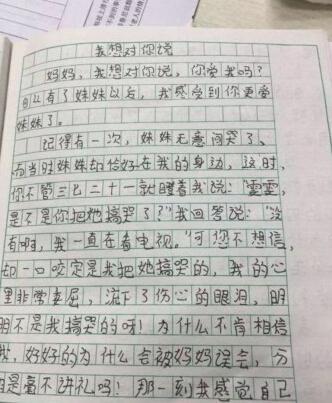 我想对你说
妈妈，我想对你说，你爱我吗？
自从有了妹妹以后，我感受到你更爱
妹妹了。
记得有一次，妹妹无意间哭了、
而当时妹妹却恰好在我的身边，这时，
你不管三七二十一就瞪着我说：“雯雯，
是不是你把她搞哭了？”我回答说：“没
有啊，我一直在看电视。”可您不想信，
却一口咬定是我把她搞哭的，我的心
里非常委屈，流下了伤心的眼泪，明
明不是我搞哭的呀！为什么不肯相信
我，好好的为什么会被妈妈误会，分
明是毫不讲礼吗！那一刻我感觉自己